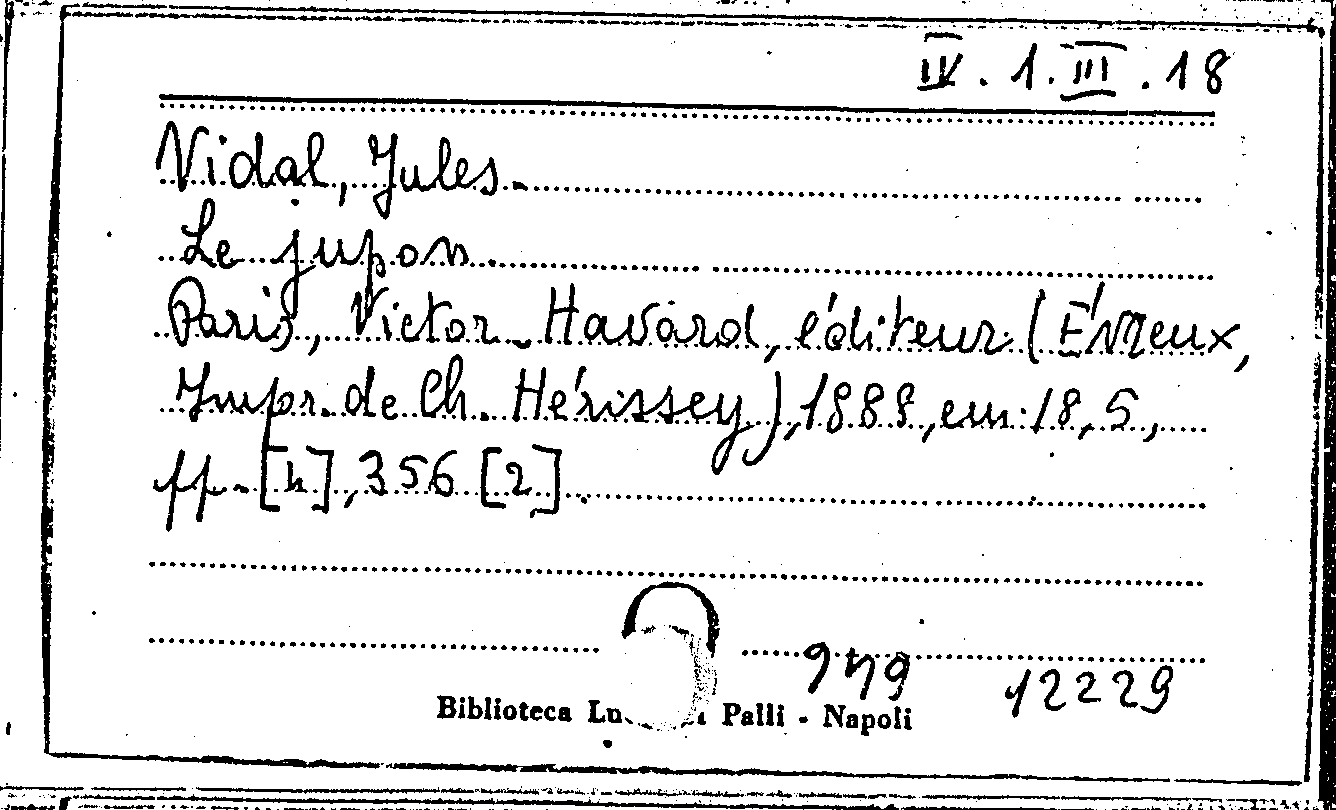 IV. 1. III. 18
Vidal, Jules.
Le jupon.
Paris, Victor-Havard, éditeur (Évreux,
Impr. de Ch. Hérissey), 1888, cm. 18,5,
pp. [4], 356 [2].
949
12229
Biblioteca Palli - Napoli